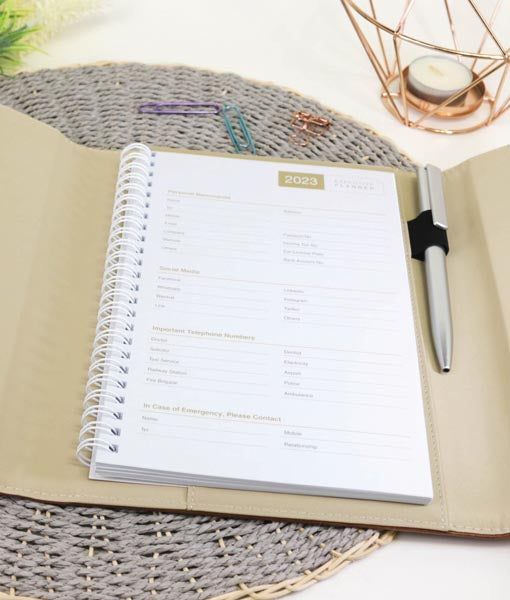 2023
EXECUTIVE
PLANNER
Personal Memoranda
Name
Address
Tel
Mobile
Email
Passport No.
Company
Income Tax No.
Website
Car License Plate
Others
Bank Account No.
Social Media
Facebook
LinkedIn
Whatsapp
Instagram
Wechat
Twitter
Line
Others
Important Telephone Numbers
Doctor
Dentist
Solicitor
Electricity
Taxi Service
Airport
Railway Station
Police
Fire Brigade
Ambulance
In Case of Emergency, Please Contact
Name
Mobile
Tel
Relationship